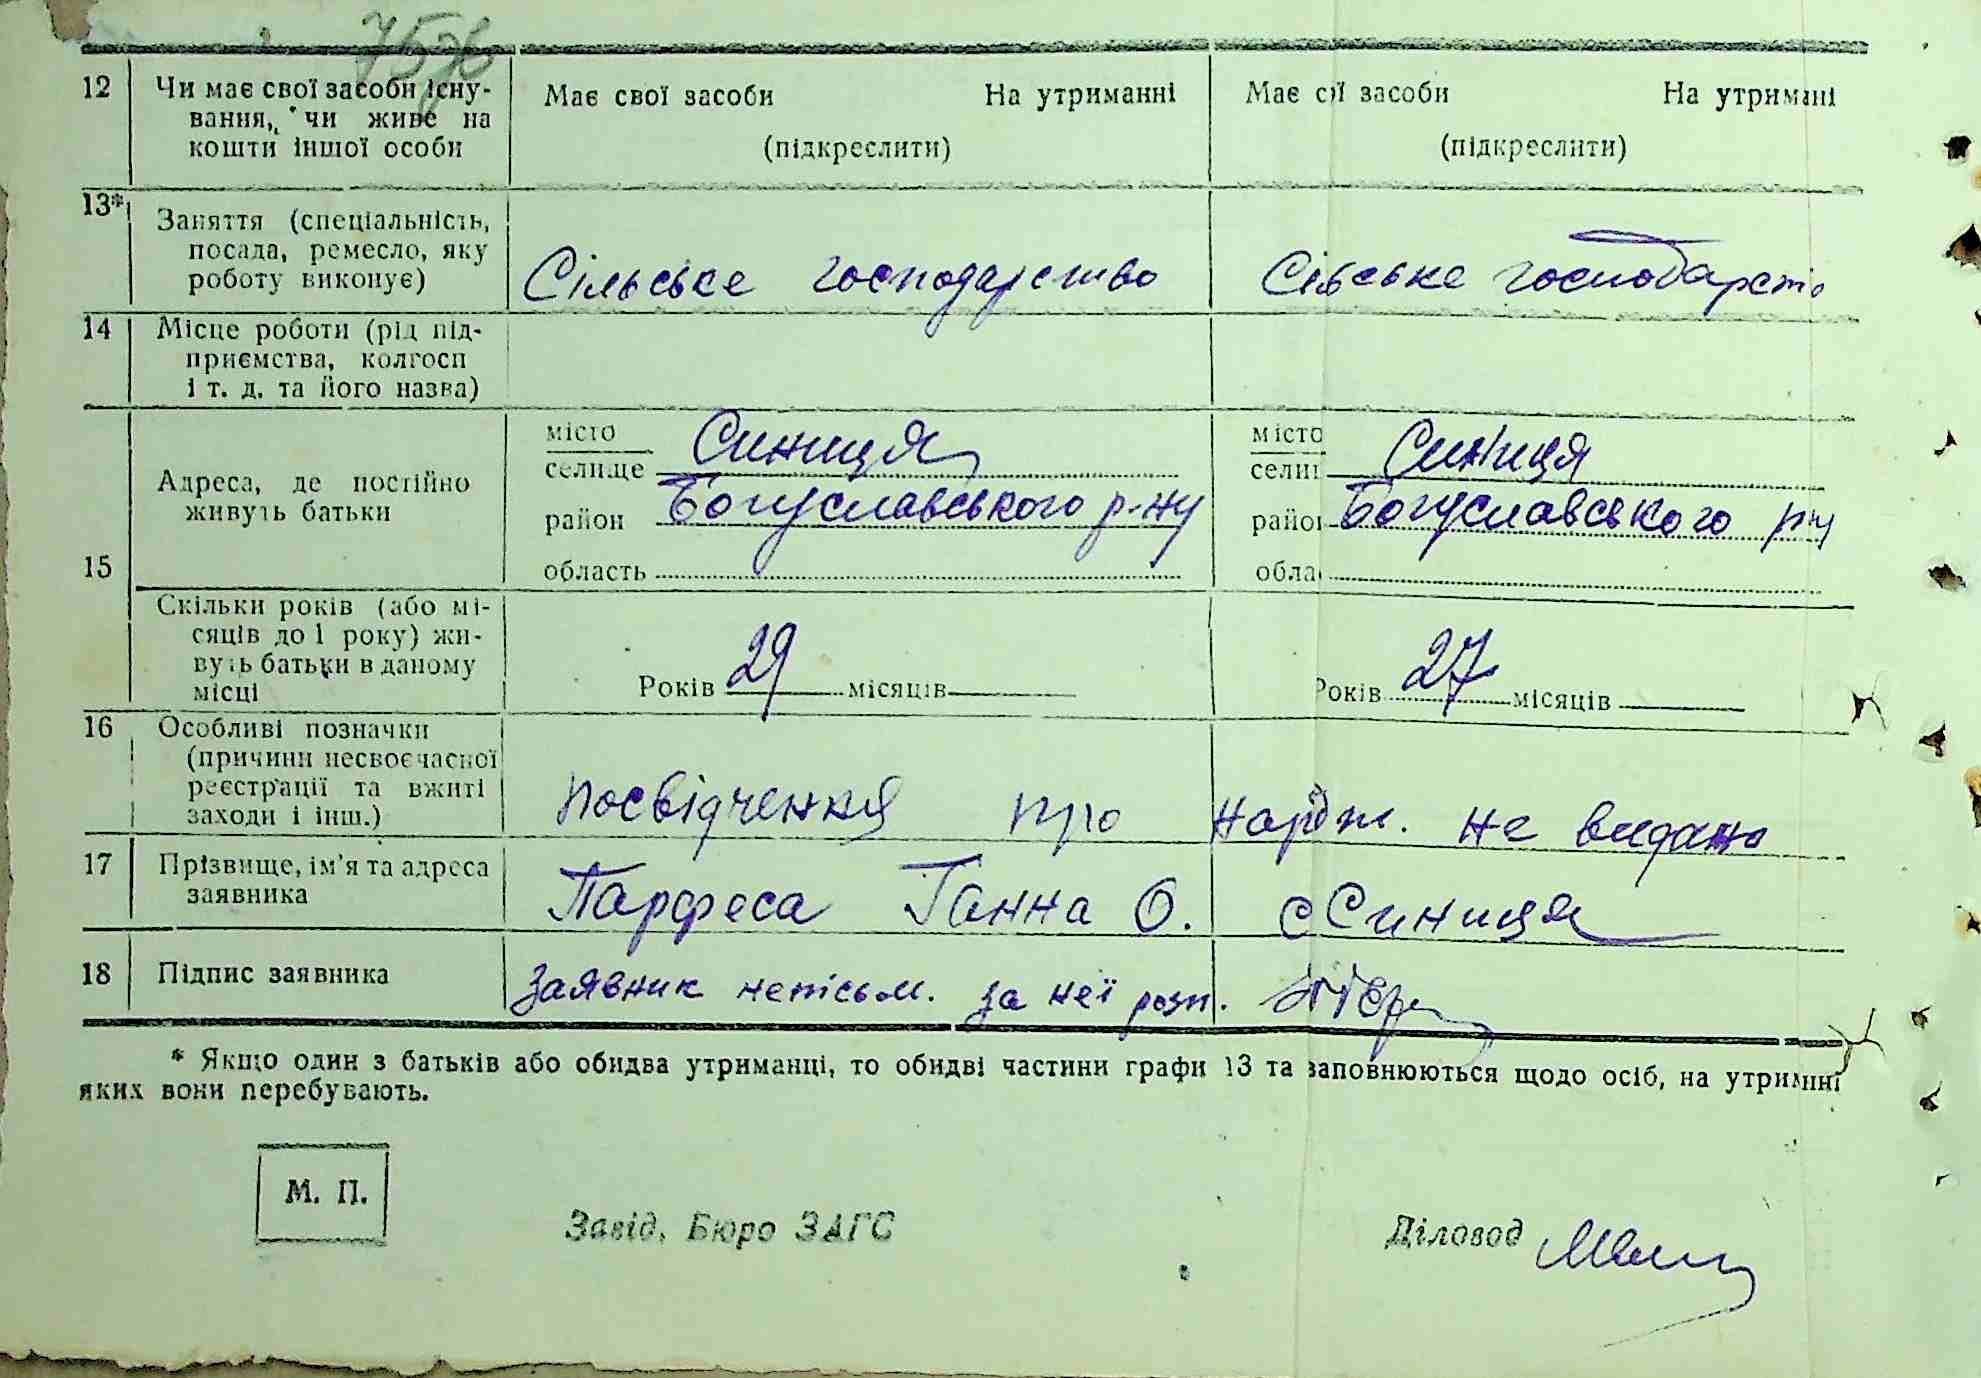 12 Чи має свої засоби існу- Має свої засоби На утриманні Має сої засоби На утримані
вання, чи живе на
кошти іншої особи (підкреслити) (підкреслити)
13* Заняття (спеціальність,
посада, ремесло, яку
роботу виконує) Сільське господарство Сільське господарство
14 Місце роботи (рід під-
приємства, колгосп
і т. д. та його назва)
місто Синиця місто Синиця
селище сели
Адреса, де постійно
живуть батьки район Богуславського р-ну район Богуславського р-ну
15 область обла
Скільки років (або мі-
сяців до 1 року) жи-
вуть батьки в даному
місці Років 29 місяців Років 27 місяців
16 Особливі позначки
(причини несвоєчасної
реєстрації та вжиті
заходи і інш.) посвідчення про народж. не видано
17 Прізвище, ім'я та адреса
заявника Парфеса Ганна О. с Синиця
18 Підпис заявника Заявник неписьм. за неї розп.
* Якщо один з батьків або обидва утриманці, то обидві частини графи 13 та заповнюються щодо осіб, на утриманні
яких вони перебувають.
М. П.
Завід. Бюро ЗАГС Діловод